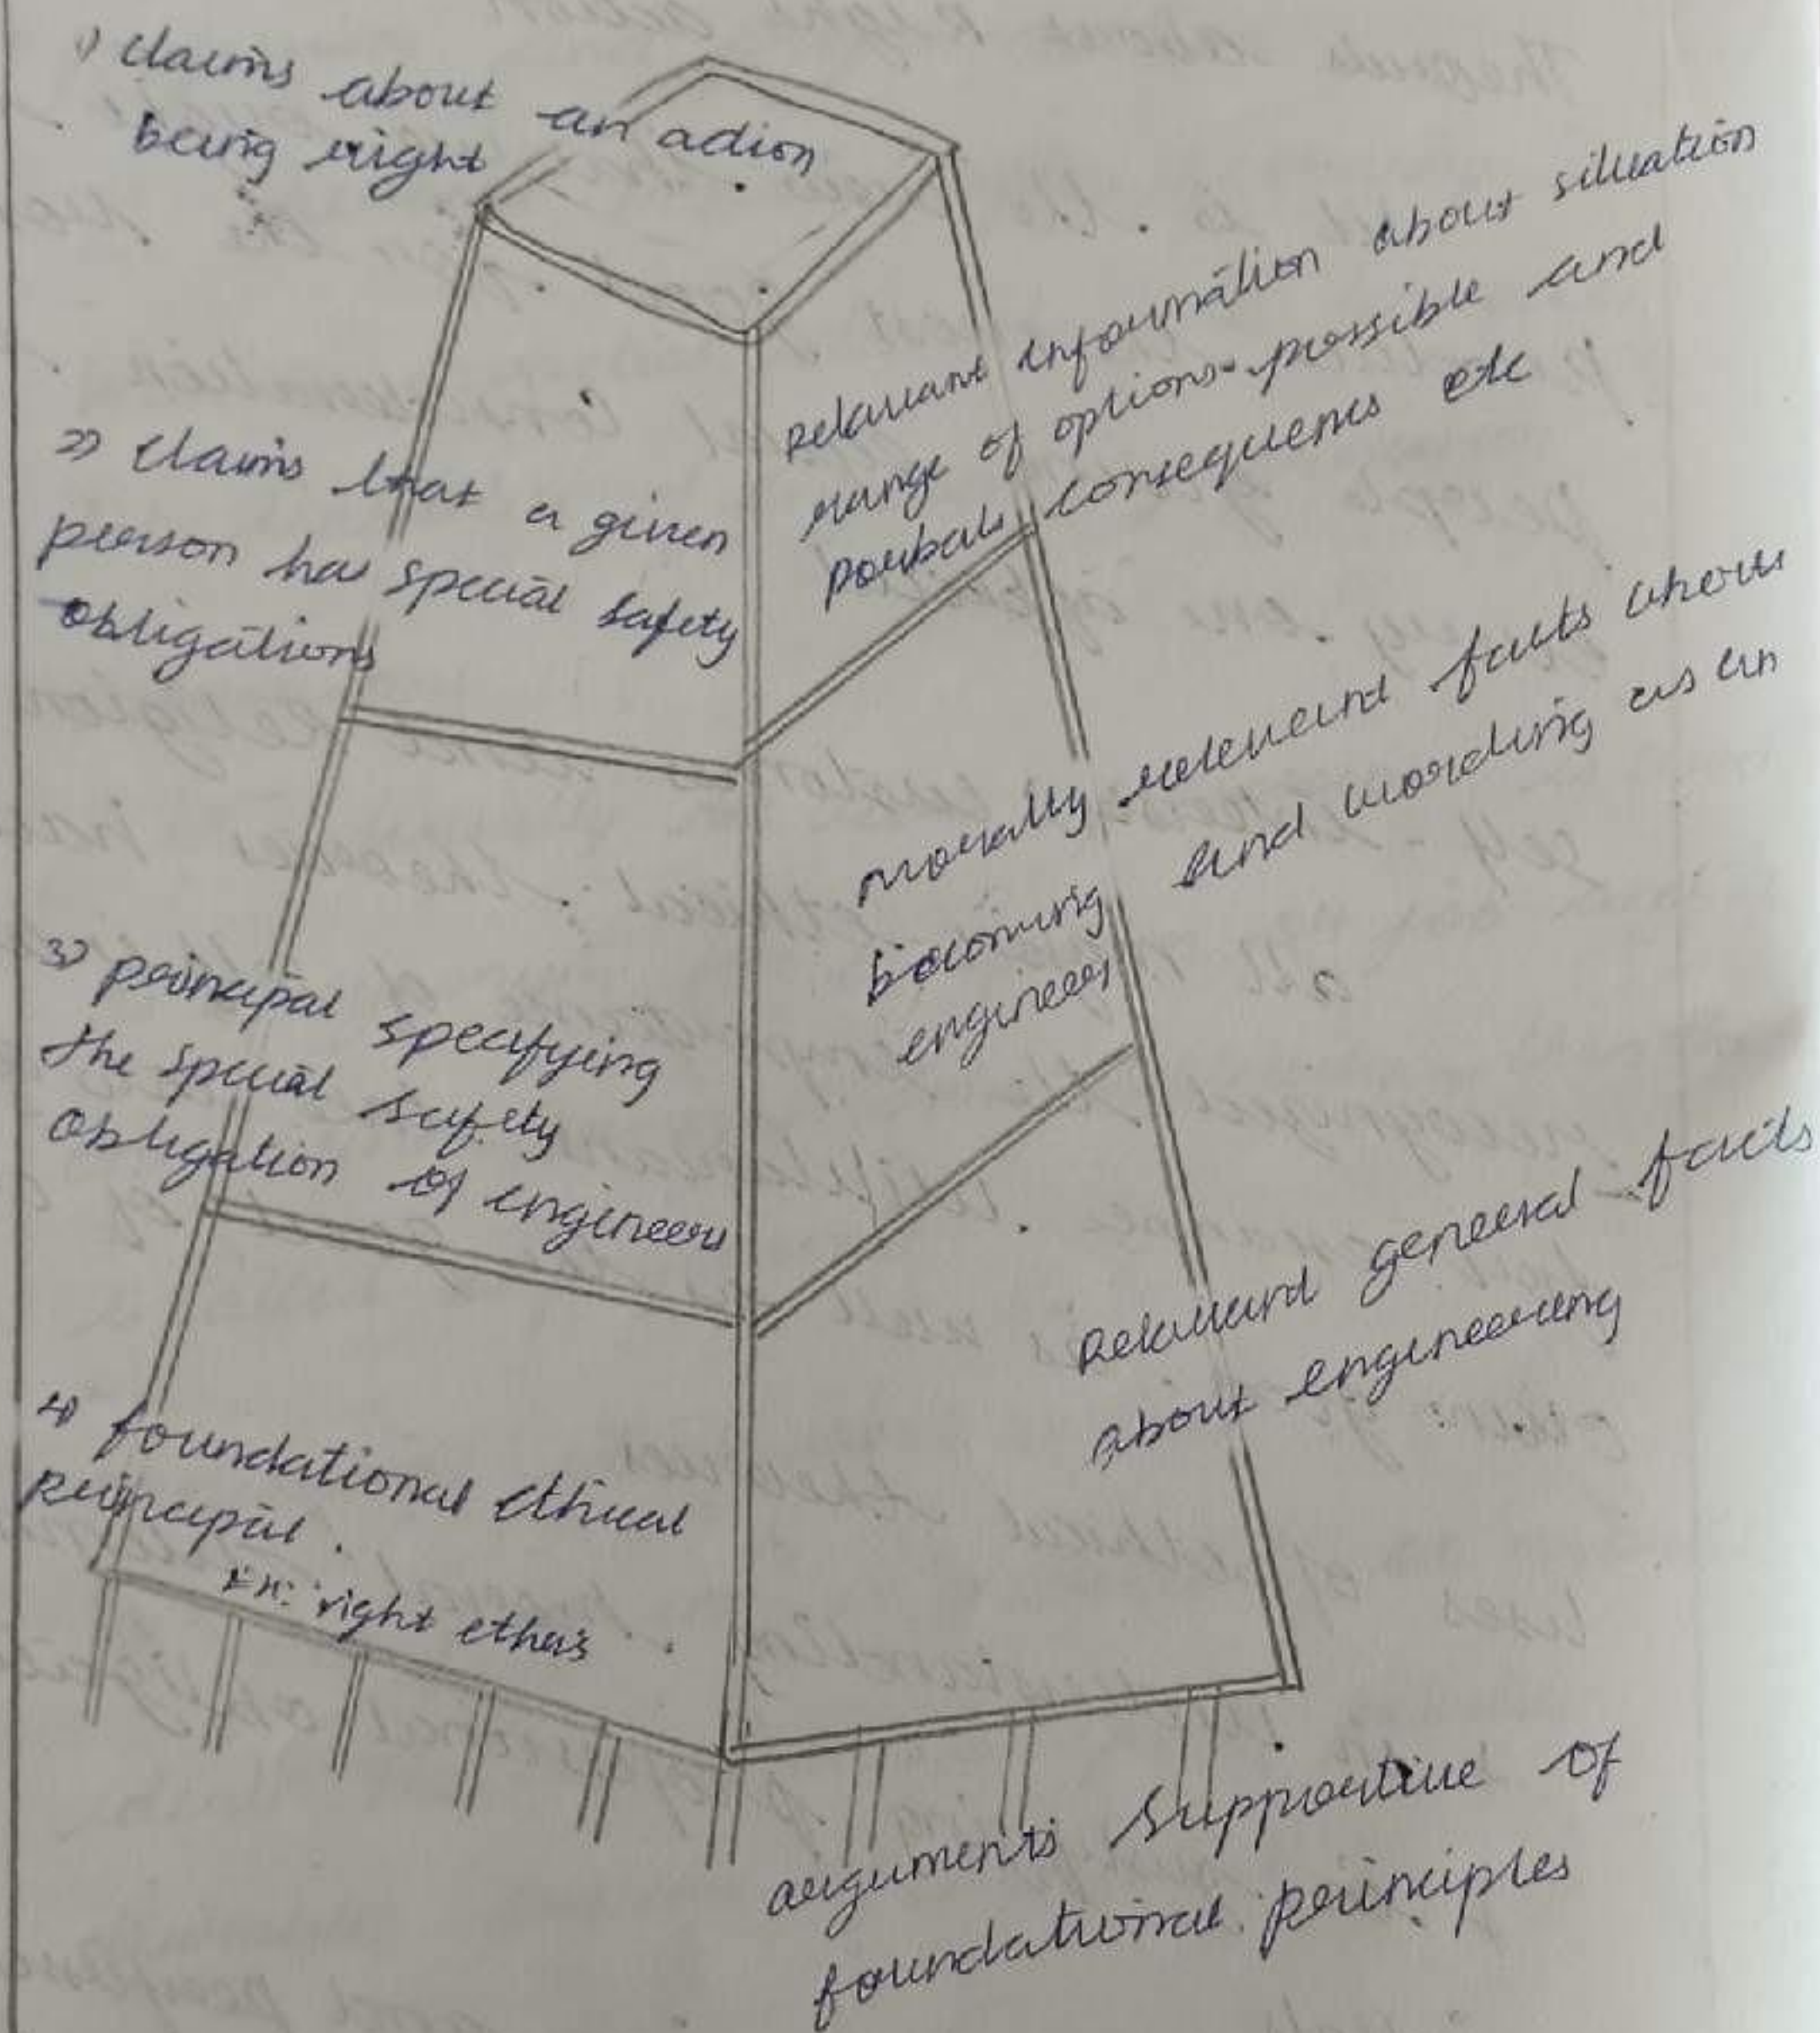 1) claims about an action
being right
2) claims that a given
person has special safety
obligations
3) principal specifying
the special safety
obligation of engineers
4) foundational ethical
principal.
Ex: right ethics
relavant information about situation
range of options possible and
consequences etc
morally relevant facts
becoming and wording as an
engineer
Relavand general facts
about engineering
arguments supportive of
foundational principles